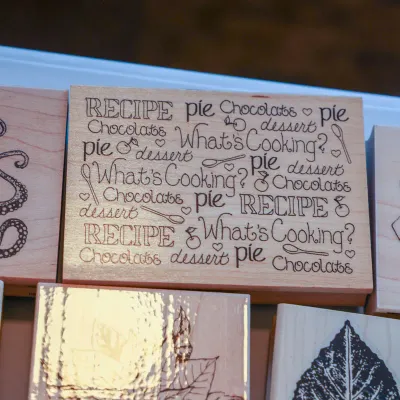 RECIPE pie Chocolate pie
Chocolate What's Cooking? dessert
pie dessert pie dessert
What's Cooking? Chocolate
Chocolate pie RECIPE
dessert
RECIPE What's Cooking?
Chocolate dessert pie Chocolate